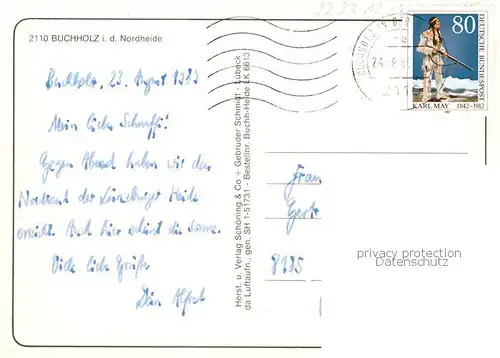 2110 BUCHHOLZ i. d. Nordheide
Buchholz, 23. August 1989
Mein lieber
Gegen Abend haben wir den
Nordrand der Lüneburger Heide
erreicht. Auch hier scheint die Sonne.
Viele liebe Grüße
Dein Alfred
Herst. u. Verlag Schöning & Co + Gebrüder Schmidt · Lübeck
da Luftaufn., gen. SH 1-51731 - Bestellnr. Buchh-Heide LK 6613
80
DEUTSCHE BUNDESPOST
KARL MAY 1842-1912
Frau
Gert
8185
privacy protection
Datenschutz